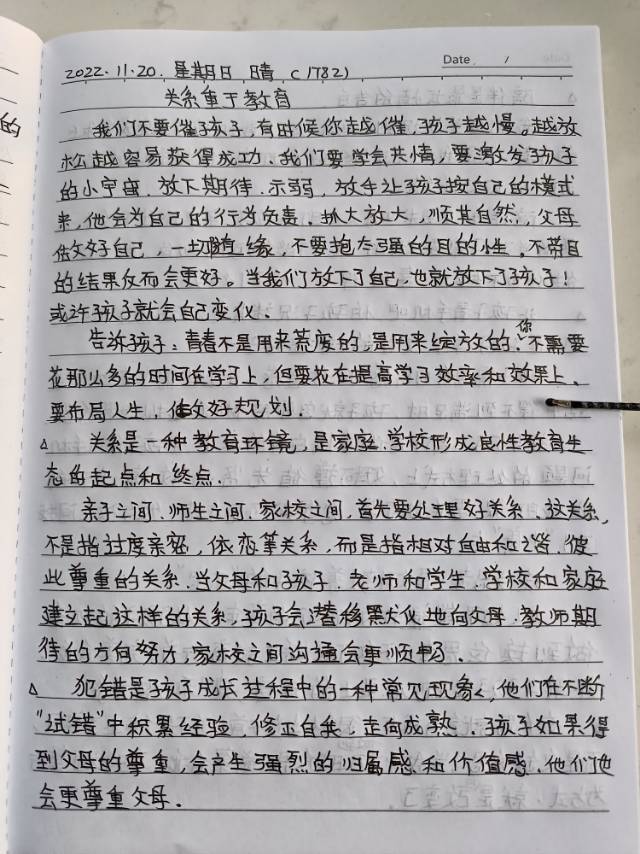 Date /
2022.11.20. 星期日 晴 C1782)
关系重于教育
我们不要催孩子,有时候你越催,孩子越慢。越放
松越容易获得成功、我们要学会共情,要激发孩子
的小宇宙、放下期待、示弱、放手让孩子按自己的模式
来,他会为自己的行为负责、抓大放大,顺其自然,父母
做好自己,一切随缘,不要抱太强的目的性、不带目
的的结果反而会更好。当我们放下了自己,也就放下了孩子!
或许孩子就会自己变化、
告诉孩子:青春不是用来荒废的,是用来绽放的、你不需要
花那么多的时间在学习上,但要花在提高学习效率和效果上、
要布局人生,做好规划.
△ 关系是一种教育环境,是家庭、学校形成良性教育生
态的起点和终点.
亲子之间、师生之间、家校之间,首先要处理好关系、这关系,
不是指过度亲密,依恋等关系,而是指相对自由和谐、彼
此尊重的关系、当父母和孩子、老师和学生、学校和家庭
建立起这样的关系,孩子会潜移默化地向父母、教师期
待的方向努力,家校之间沟通会更顺畅、
△ 犯错是孩子成长过程中的一种常见现象,他们在不断
“试错”中积累经验,修正自我,走向成熟、孩子如果得
到父母的尊重,会产生强烈的归属感和价值感、他们也
会更尊重父母.
的